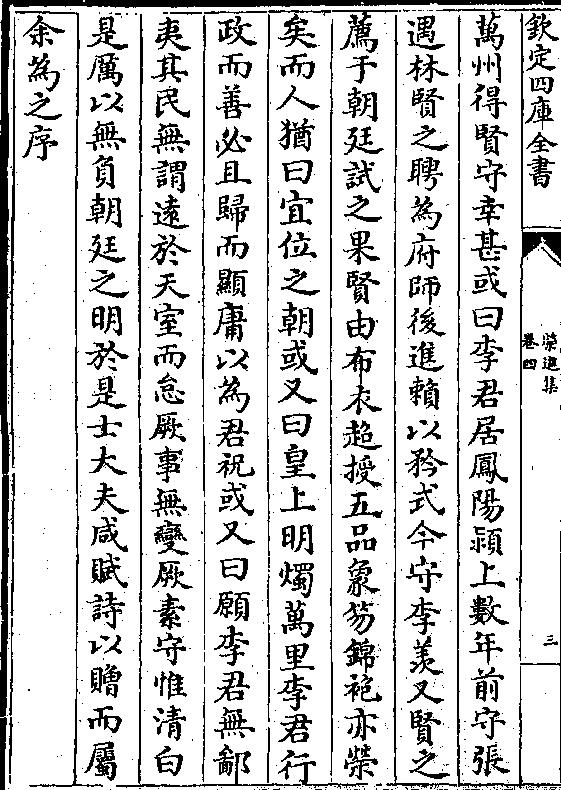 欽定四庫全書
榮進集
卷四
三
萬州得賢守幸甚或曰李君居鳳陽潁上數年前守張
遇林賢之聘為府師後進賴以矜式今守李羨又賢之
薦于朝廷試之果賢由布衣超授五品象笏錦袍亦榮
矣而人猶曰宜位之朝或又曰皇上明燭萬里李君行
政而善必且歸而顯庸以為君祝或又曰願李君無鄙
夷其民無謂遠於天室而怠厥事無變厥素守惟清白
是厲以無負朝廷之明於是士大夫咸賦詩以贈而屬
余為之序